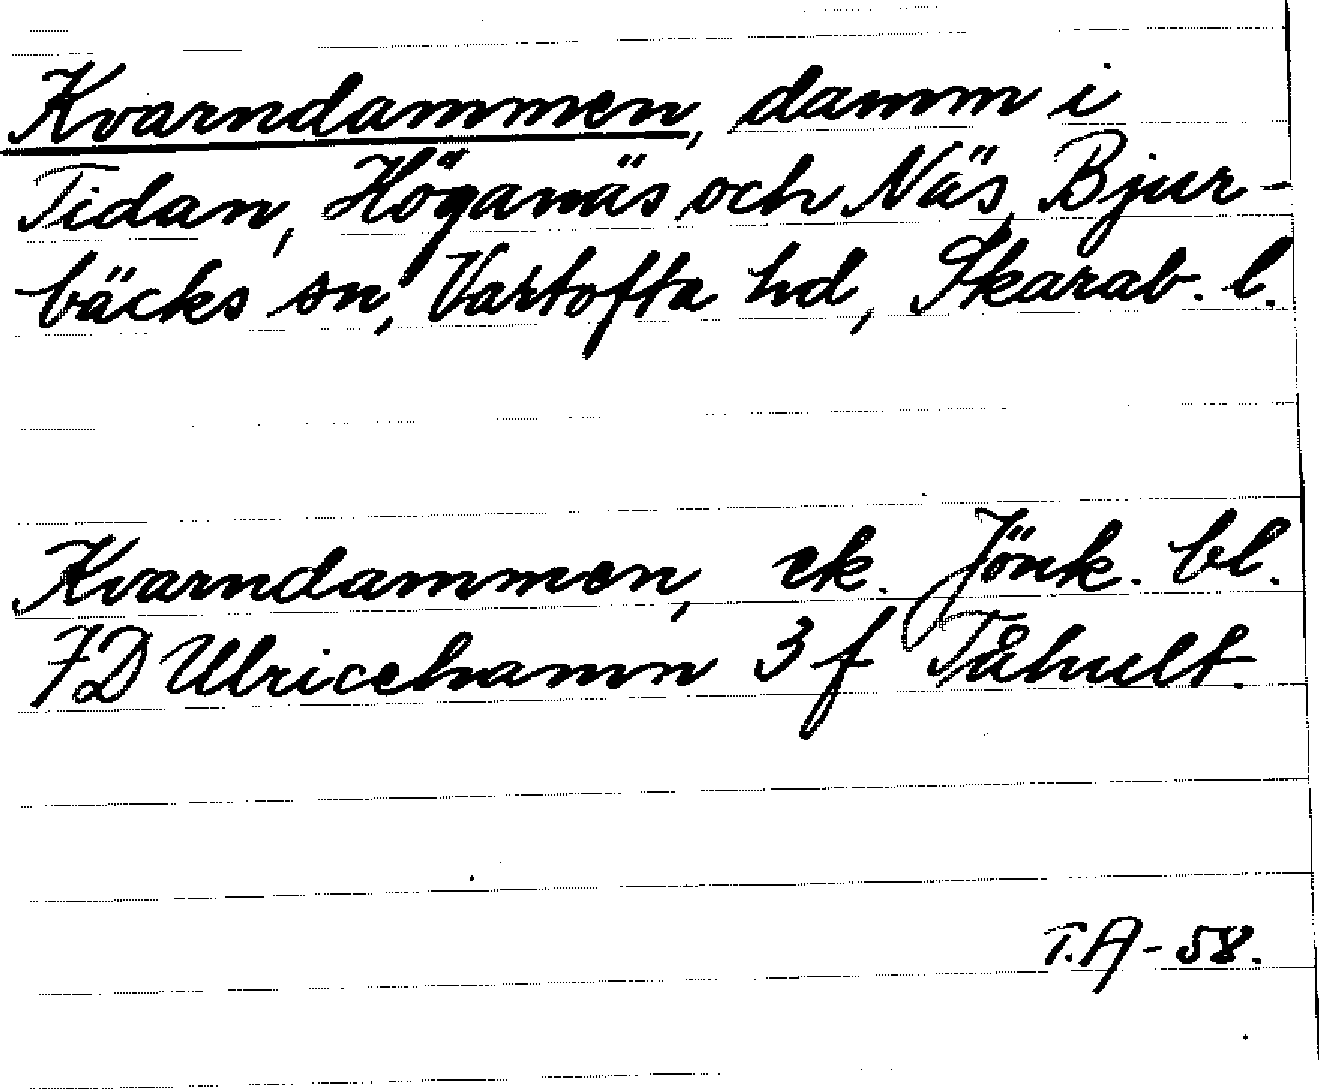 Kvarndammen, damm i
Tidan, Höganäs och Näs, Bjur-
bäcks sn, Vartofta hd, Skarab. l.
Kvarndammen, ek. Jönk. bl.
7D Ulricehamn 3 f Tåhult.
T.A - 58.